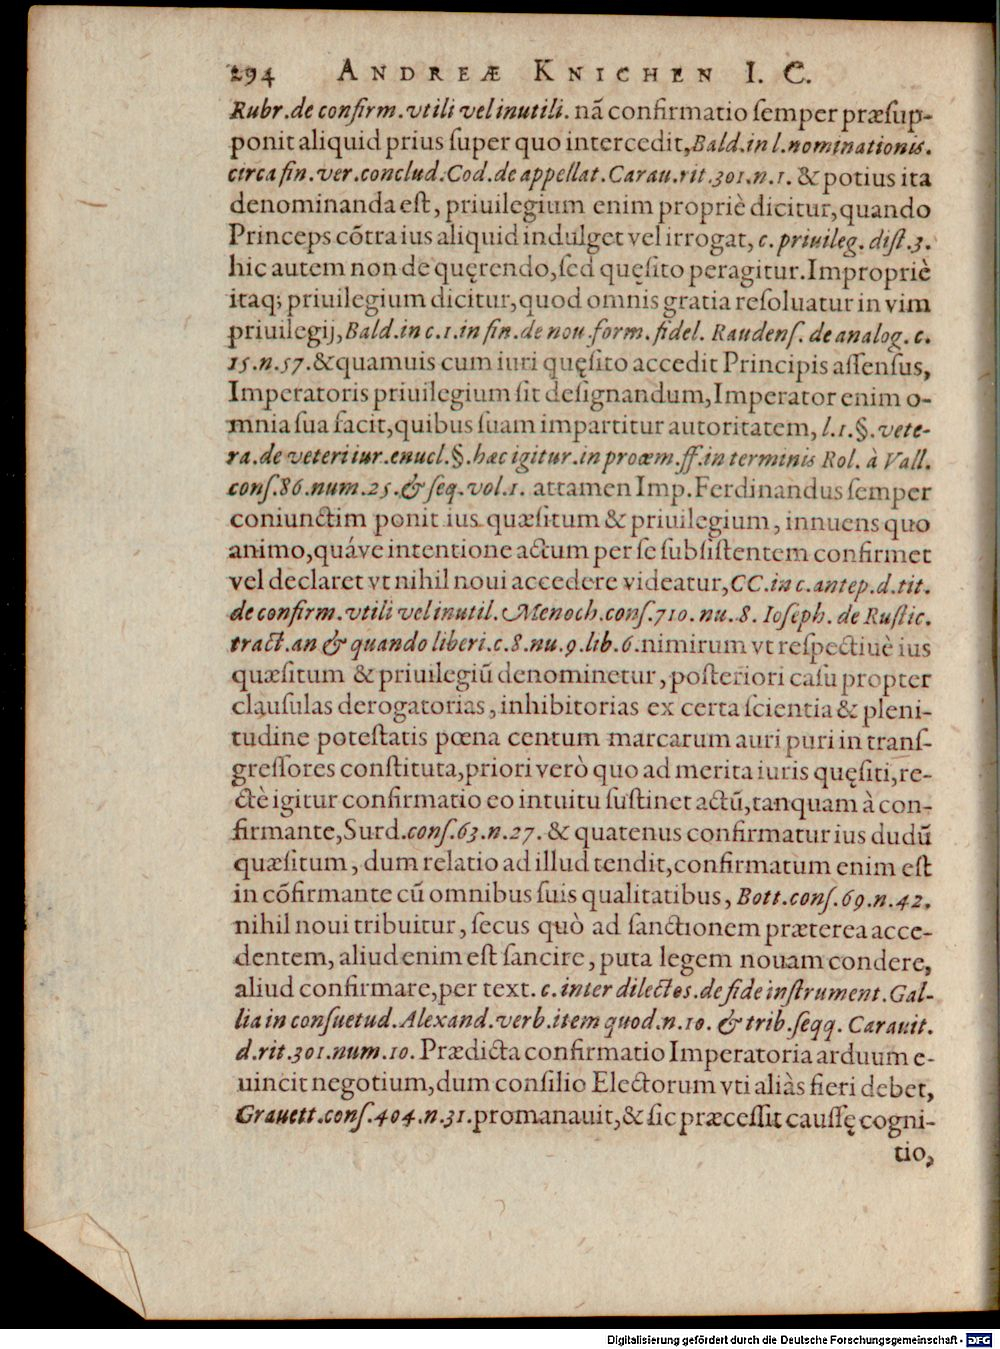 294 ANDREÆ KNICHEN I. C.
Rubr.de confirm.vtili vel inutili. nã confirmatio ſemper præſup-
ponit aliquid prius ſuper quo intercedit,Bald.in l.nominationis.
circa fin.ver.conclud.Cod.de appellat.Carau.rit.301.n.1. & potius ita
denominanda eſt, priuilegium enim propriè dicitur,quando
Princeps cõtra ius aliquid indulget vel irrogat, c.priuileg. diſt.3.
hic autem non de quęrendo,ſed quęſito peragitur.Impropriè
itaq; priuilegium dicitur,quod omnis gratia reſoluatur in vim
priuilegij,Bald.in c.1.in fin.de nou.form.fidel. Raudenſ. de analog. c.
15.n.57.&quamuis cum iuri quęſito accedit Principis aſſenſus,
Imperatoris priuilegium ſit deſignandum,Imperator enim o-
mnia ſua facit,quibus ſuam impartitur autoritatem, l.1.§.vete-
ra.de veteri iur.enucl.§.hac igitur.in proœm.ff.in terminis Rol. à Vall.
conſ.86.num.25.& ſeq.vol.1. attamen Imp.Ferdinandus ſemper
coniunctim ponit ius quæſitum & priuilegium, innuens quo
animo,quáve intentione actum per ſe ſubſiſtentem confirmet
vel declaret vt nihil noui accedere videatur,CC.in c.antep.d.tit.
de confirm.vtili vel inutil.Menoch.conſ.710. nu.8. Ioſeph. de Ruſtic.
tract.an & quando liberi.c.8.nu.9.lib.6.nimirum vt reſpectiuè ius
quæſitum & priuilegiũ denominetur, poſteriori caſu propter
clauſulas derogatorias, inhibitorias ex certa ſcientia & pleni-
tudine poteſtatis pœna centum marcarum auri puri in tranſ-
greſſores conſtituta,priori verò quo ad merita iuris quęſiti,re-
ctè igitur confirmatio eo intuitu ſuſtinet actũ,tanquam à con-
firmante,Surd.conſ.63.n.27. & quatenus confirmatur ius dudũ
quæſitum, dum relatio ad illud tendit,confirmatum enim eſt
in cõfirmante cũ omnibus ſuis qualitatibus, Bott.conſ.69.n.42.
nihil noui tribuitur, ſecus quò ad ſanctionem præterea acce-
dentem, aliud enim eſt ſancire, puta legem nouam condere,
aliud confirmare,per text. c.inter dilectos.de fide inſtrument.Gal-
lia in conſuetud.Alexand.verb.item quod.n.10. & trib.ſeqq. Carauit.
d.rit.301.num.10. Prædicta confirmatio Imperatoria arduum e-
uincit negotium,dum conſilio Electorum vti aliàs fieri debet,
Grauett.conſ.404.n.31.promanauit,& ſic præceſſit cauſſę cogni-
tio,
Digitalisierung gefördert durch die Deutsche Forschungsgemeinschaft - DFG